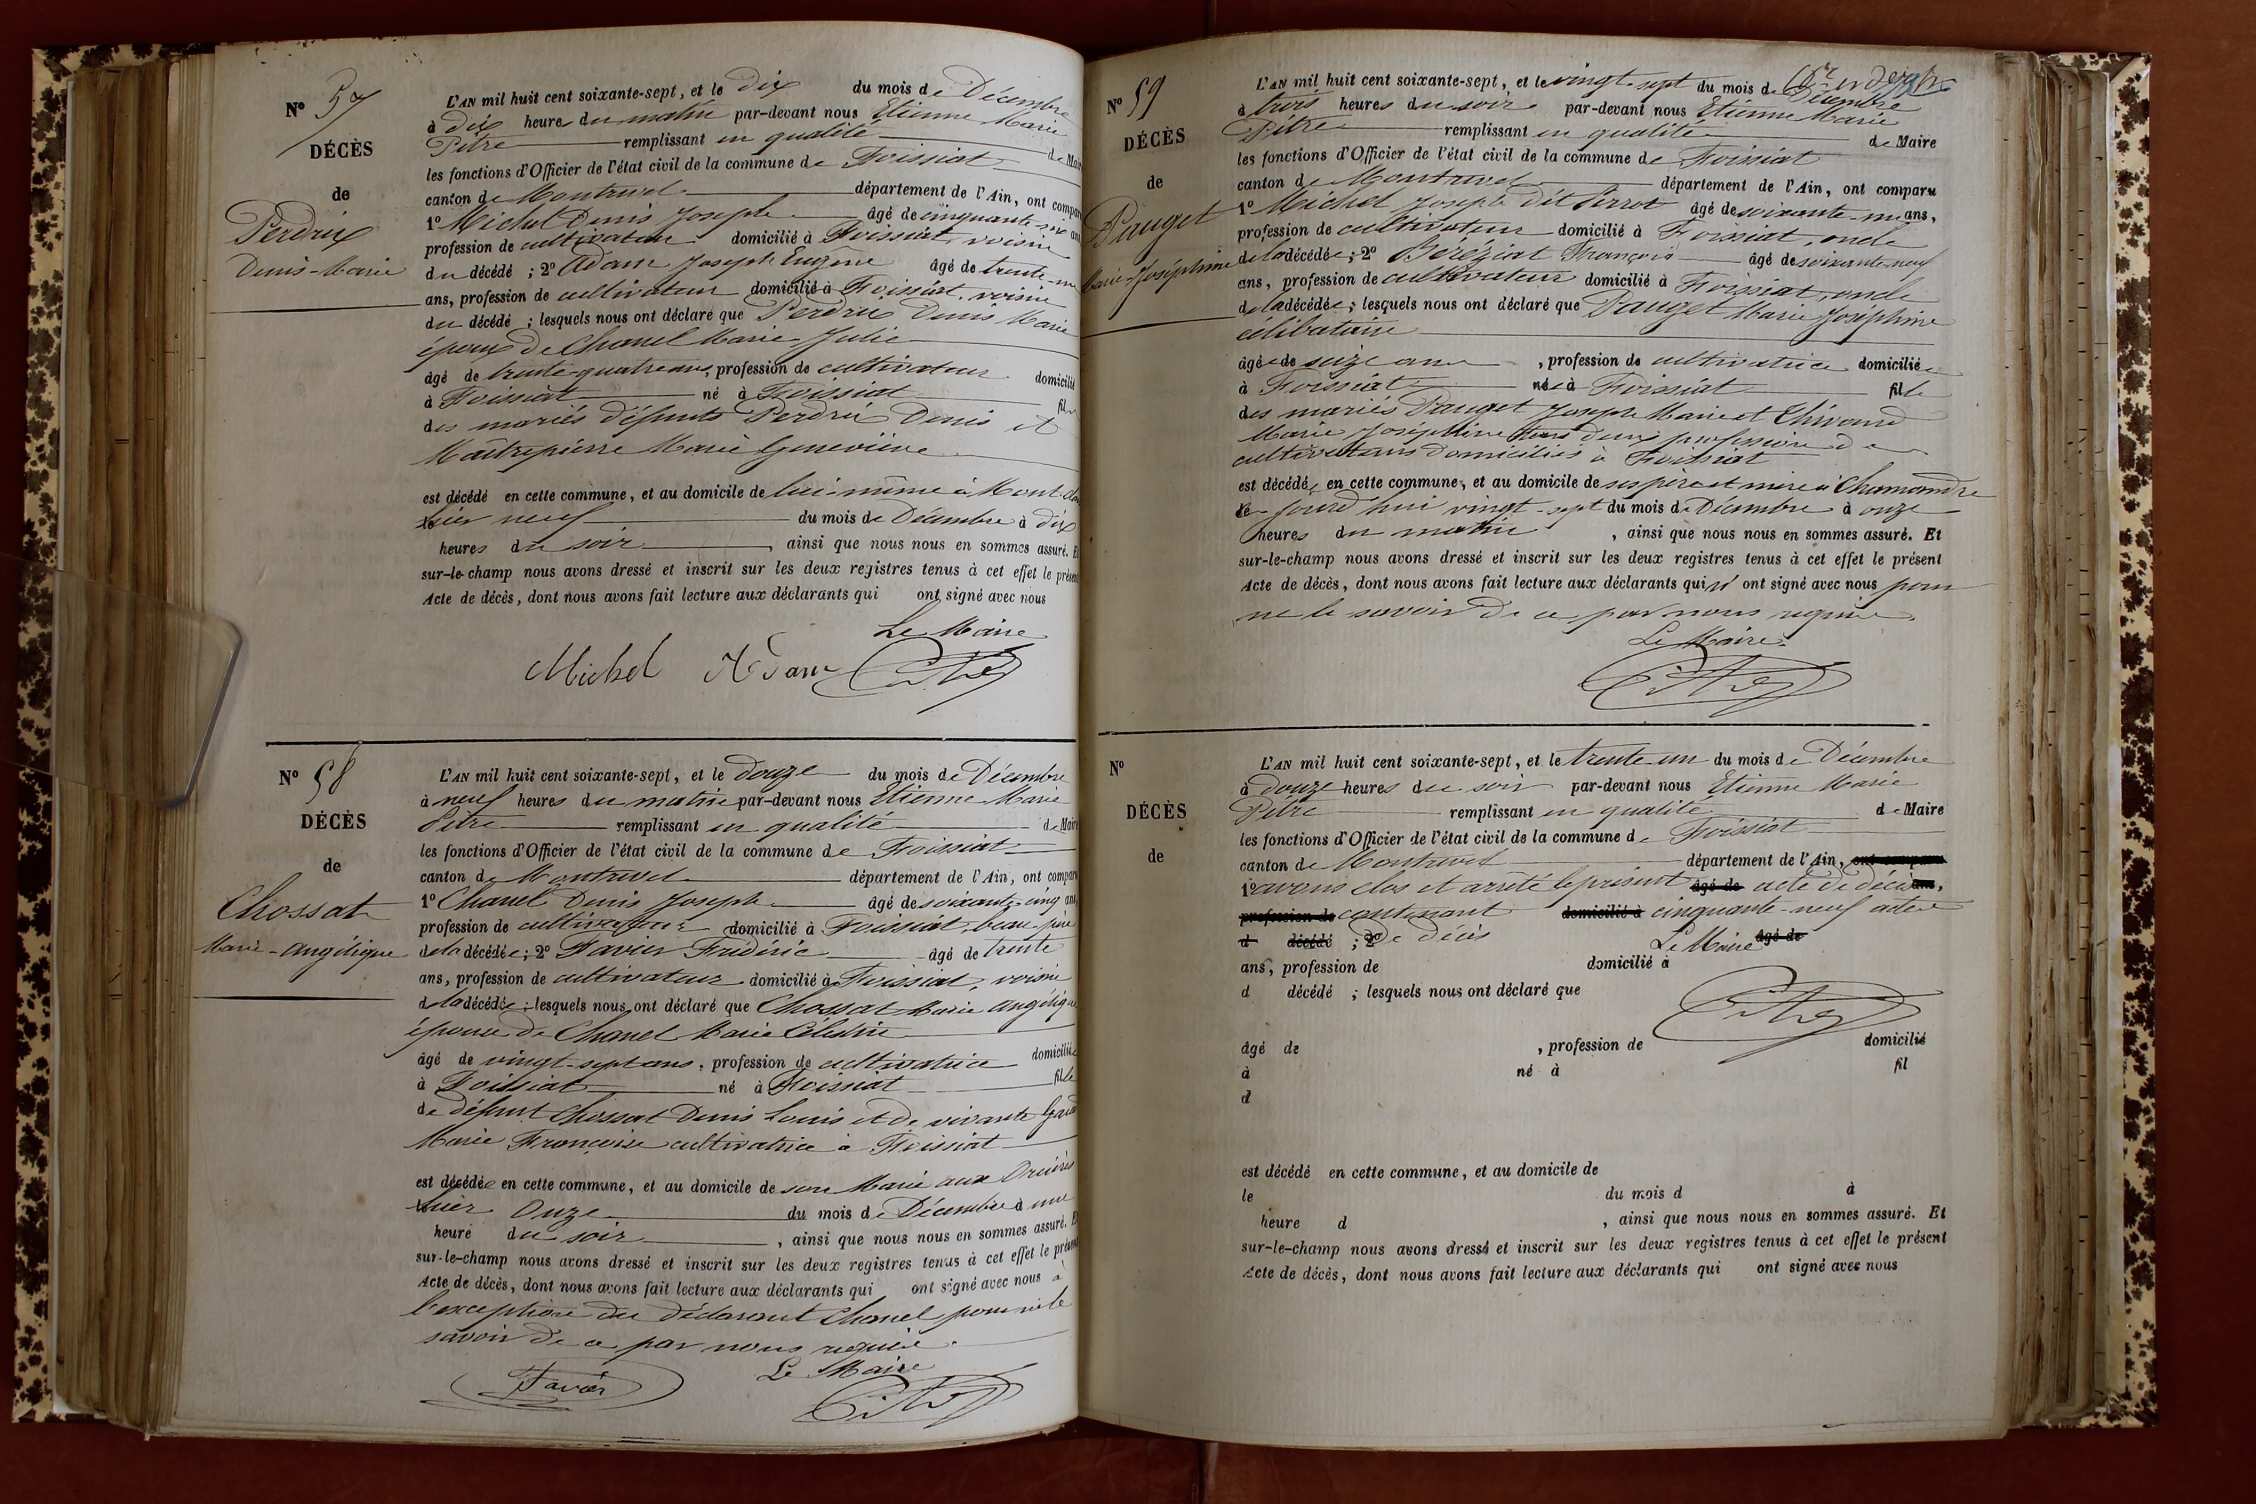 N° 57
DÉCÈS
de
Perdrix
Denis-Marie
L'AN mil huit cent soixante-sept, et le dix du mois de Décembre
à dix heures du matin par-devant nous Etienne Marie
Pitre remplissant en qualité de Maire
les fonctions d'Officier de l'état civil de la commune de Foissiat
canton de Montrevel département de l'Ain, ont comparu
1° Michel Denis Joseph âgé de cinquante-six ans
profession de cultivateur domicilié à Foissiat, voisin
du décédé ; 2° Adam Joseph Eugène âgé de trente-un
ans, profession de cultivateur domicilié à Foissiat, voisin
du décédé ; lesquels nous ont déclaré que Perdrix Denis Marie
époux de Chanel Marie Julie
âgé de trente-quatre ans, profession de cultivateur domicilié
à Foissiat né à Foissiat fils
des mariés défunts Perdrix Denis et
Maîtrepierre Marie Geneviève
est décédé en cette commune, et au domicile de lui-même à
hier neuf du mois de Décembre à dix
heures du soir, ainsi que nous nous en sommes assuré. Et
sur-le-champ nous avons dressé et inscrit sur les deux registres tenus à cet effet le présent
Acte de décès, dont nous avons fait lecture aux déclarants qui ont signé avec nous
Le Maire
Michel Adam Pitre
N° 58
DÉCÈS
de
Chossat
Marie-Angélique
L'AN mil huit cent soixante-sept, et le douze du mois de Décembre
à neuf heures du matin par-devant nous Etienne Marie
Pitre remplissant en qualité de Maire
les fonctions d'Officier de l'état civil de la commune de Foissiat
canton de Montrevel département de l'Ain, ont comparu
1° Chanel Denis Joseph âgé de soixante-cinq ans
profession de cultivateur domicilié à Foissiat, beau-père
de la décédée ; 2° Favier Frédéric âgé de trente
ans, profession de cultivateur domicilié à Foissiat, voisin
de la décédée ; lesquels nous ont déclaré que Chossat Marie Angélique
épouse de Chanel Marie Célestin
âgé de vingt-sept ans, profession de cultivatrice domiciliée
à Foissiat né à Foissiat fille
de défunt Chossat Denis Louis et de vivante
Marie Françoise cultivatrice à Foissiat
est décédée en cette commune, et au domicile de son Mari aux
hier onze du mois de Décembre à une
heure du soir, ainsi que nous nous en sommes assuré. Et
sur-le-champ nous avons dressé et inscrit sur les deux registres tenus à cet effet le présent
Acte de décès, dont nous avons fait lecture aux déclarants qui ont signé avec nous à
l'exception du déclarant Chanel pour ne le
savoir de ce par nous requis.
Le Maire
Favier Pitre
N° 59
DÉCÈS
de
Pauget
Marie-Joséphine
L'AN mil huit cent soixante-sept, et le vingt-sept du mois de Décembre
à trois heures du soir par-devant nous Etienne Marie
Pitre remplissant en qualité de Maire
les fonctions d'Officier de l'état civil de la commune de Foissiat
canton de Montrevel département de l'Ain, ont comparu
1° Michel Joseph dit Pirrot âgé de soixante-un ans,
profession de cultivateur domicilié à Foissiat, oncle
de la décédée ; 2° Béréziat François âgé de soixante-neuf
ans, profession de cultivateur domicilié à Foissiat, oncle
de la décédée ; lesquels nous ont déclaré que Pauget Marie Joséphine
célibataire
âgée de seize ans, profession de cultivatrice domiciliée
à Foissiat née à Foissiat fille
des mariés Pauget Joseph Marie et
Marie Joséphine tous deux profession de
cultivateurs domiciliés à Foissiat
est décédée en cette commune, et au domicile de ses père et mère à Chamandre
le jourd'hui vingt-sept du mois de Décembre à onze
heures du matin, ainsi que nous nous en sommes assuré. Et
sur-le-champ nous avons dressé et inscrit sur les deux registres tenus à cet effet le présent
Acte de décès, dont nous avons fait lecture aux déclarants qui n'ont signé avec nous pour
ne le savoir de ce par nous requis.
Le Maire
Pitre
N°
DÉCÈS
de
L'AN mil huit cent soixante-sept, et le trente-un du mois de Décembre
à douze heures du soir par-devant nous Etienne Marie
Pitre remplissant en qualité de Maire
les fonctions d'Officier de l'état civil de la commune de Foissiat
canton de Montrevel département de l'Ain, ont comparu
1° avons clos et arrêté le présent âgé de acte de décès ans,
profession de contenant domicilié à cinquante-neuf actes
d décédé ; 2° de décès Le Maire âgé de
ans, profession de domicilié à
d décédé ; lesquels nous ont déclaré que
Pitre
âgé de , profession de domicilié
à né à fil
d
est décédé en cette commune, et au domicile de
le du mois d à
heure d , ainsi que nous nous en sommes assuré. Et
sur-le-champ nous avons dressé et inscrit sur les deux registres tenus à cet effet le présent
Acte de décès, dont nous avons fait lecture aux déclarants qui ont signé avec nous